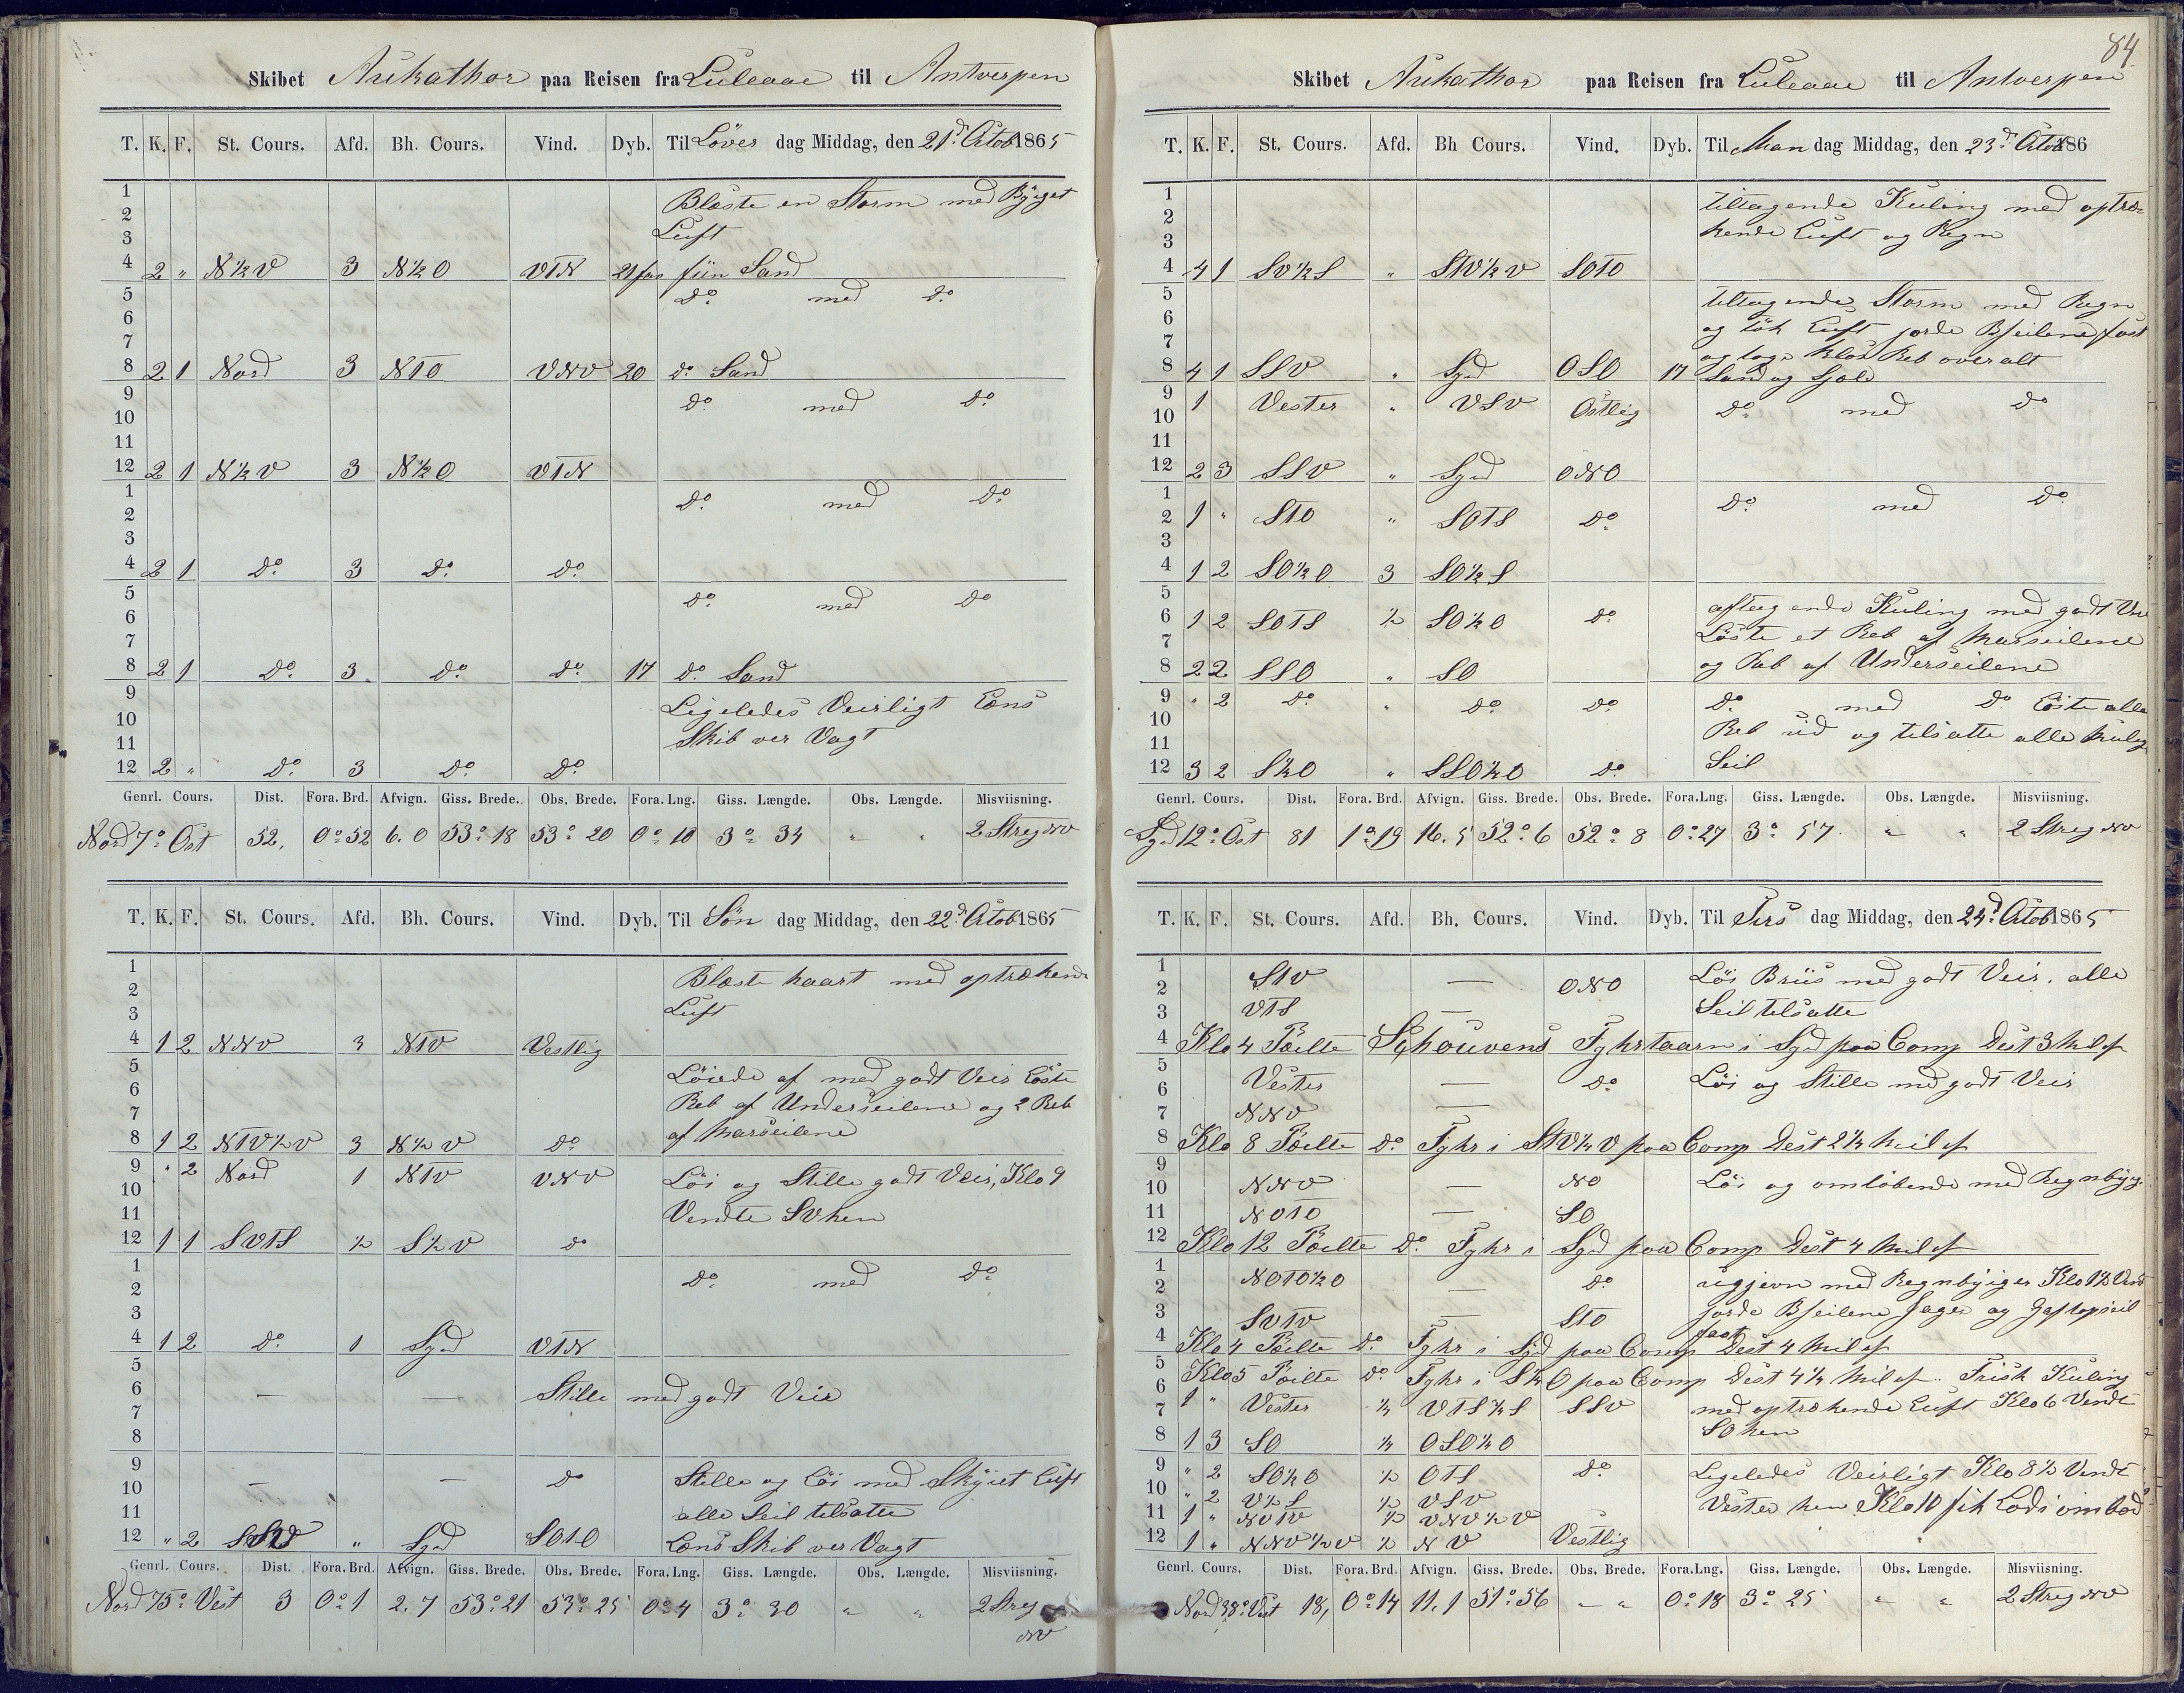 84
Skibet Aukathor paa Reisen fra Luleaae til Antverpen
T. K. F. St. Cours. Afd. Bh. Cours. Vind. Dyb. Til Löver dag Middag, den 21d Octob 1865
1 Blæste en Storm med Byget
2 Luft
3
4 2 " N½V 3 N½O VTN 21 fav fiin Sand
5 Do med Do
6
7
8 2 1 Nord 3 NTO VNV 20 do Sand
9 Do med Do
10
11
12 2 1 N½V 3 N½O VTN
1 Do med Do
2
3
4 2 1 Do 3 Do Do
5 Do med Do
6
7
8 2 1 Do 3 Do Do 17 do Sand
9 Ligeledes Veirligt Læns
10 Skib ver Vagt
11
12 2 " Do 3 Do Do
Genrl. Cours. Dist. Fora. Brd. Afvign. Giss. Brede. Obs. Brede. Fora. Lng. Giss. Længde. Obs. Længde. Misviisning.
Nord 7° Ost 52, 0° 52 6.0 53° 18 53° 20 0° 10 3° 34 " " 2 Streg NV
T. K. F. St. Cours. Afd. Bh. Cours. Vind. Dyb. Til Sön dag Middag, den 22d Octob 1865
1 Blæste haart med optrækend
2 Luft
3
4 1 2 NNV 3 NTV Vestlig
5 Löiede af med godt Veir Löste
6 Reb af Underseilene og 2 Reb
7 af Marseilene
8 1 2 NTV½V 3 N½V do
9 " 2 Nord 1 NTV VNV Löi og Stille godt Veir, Klo 9
10 Vendte SV hen
11
12 1 1 SVTS ½ S½V do
1 Do med Do
2
3
4 1 2 do 1 Syd VTN
5
6 — — Stille med godt Veir
7
8
9 Stille og Löi med Skyiet Luft
10 — — do
11 alle Seil tilsatte
12 " 2 SSV " Syd SOTO Læns Skib ver Vagt
Genrl. Cours. Dist. Fora. Brd. Afvign. Giss. Brede. Obs. Brede. Fora. Lng. Giss. Længde. Obs. Længde. Misviisning.
Nord 75° Vest 3 0° 1 2.7 53° 21 53° 25 0° 4 3° 30 " " 2 Streg
NV
Skibet Aukathor paa Reisen fra Luleaae til Antverpen
T. K. F. St. Cours. Afd. Bh Cours. Vind. Dyb. Til Man dag Middag, den 23d Octob 186
1 tiltagende Kuling med optræ-
2 kende Luft og Regn
3
4 4 1 SV½S " STV½V SOTO
5 tiltagende Storm med Regn
6 og tök Luft jorde Bseilene fast
7 og toge Klos Reb over alt
8 4 1 SSV " Syd OSO 17 Sand og Sjæle
9 1 Vester " VSV Ostlig Do med Do
10
11
12 2 3 SSV " Syd ONO
1 Do med Do
2 1 " STO " SOTS Do
3
4 1 2 SO½O 3 SO½S
5 aftagende Kuling med godt Vei
6 1 2 SOTS ½ SO½O do
7 Löste et Reb af Marseilene
8 2 2 SSO " SO og Reb af Underseilene
9 " 2 Do " Do Do Do med Do Löste alle
10 Reb ud og tilsatte alle Kuling
11
12 3 2 S½O " SSO½O do Seil
Genrl. Cours. Dist. Fora. Brd. Afvign. Giss. Brede. Obs. Brede. Fora.Lng. Giss. Længde. Obs. Længde. Misviisning.
Syd 12° Ost 81 1° 19 16.5 52° 6 52° 8 0° 27 3° 57 " " 2 Streg NV
T. K. F. St. Cours. Afd. Bh. Cours. Vind. Dyb. Til Tirs dag Middag, den 24d Octob 1865
1 STV — ONO Löi Briis med godt Veir. alle
2
3 VTS — Seil tilsatte
4 Klo 4 Peilte Schouvens Fyhrtaarn i Syd paa Comp Dest 3 Mil af
5 Vester — do Löi og Stille med godt Veir
6
7 NNV —
8 Klo 8 Peilte do Fyhr i STV½V paa Comp Dest 2¼ Mil af
9
10 NNV — NO Löi og omlöbende med Regnbyg.
11 NOTO — SO
12 Klo 12 Peilte do Fyhr i Syd paa Comp Dest 4 Mil af
1 NOTO½O — do ugjevn med Regnbyiger Klo 1½ Vend
2
3 SVTV — STO jorde Bseilene Jager og Gaftopseil
fast
4 Klo 4 Peilte do Fyhr i Syd paa Comp Dest 4 Mil af
5 Klo 5 Peilte do Fyhr i S½O paa Comp Dest 4¼ Mil af. Frisk Kuling
6 1 " Vester ½ VTS½S SSV med optrækende Luft Klo 6 Vendt
7
8 1 3 SO ½ OSO½O SO hen
9 " 2 SO½O ½ OTS do Ligeledes Veirligt Klo 8½ Vendt
10 " 2 V½S ½ VSV Vester hen Klo 10 fik Lods ombod
11 1 " NVTV ½ VNV½V
12 1 " NNV½V ½ NV Vestlig
Genrl. Cours. Dist. Fora. Brd. Afvign. Giss. Brede. Obs. Brede. Fora.Lng. Giss. Længde. Obs. Længde. Misviisning.
Nord 38° Vest 18, 0° 14 11.1 51° 56 — " 0° 18 3° 25 " " 2 Streg NV